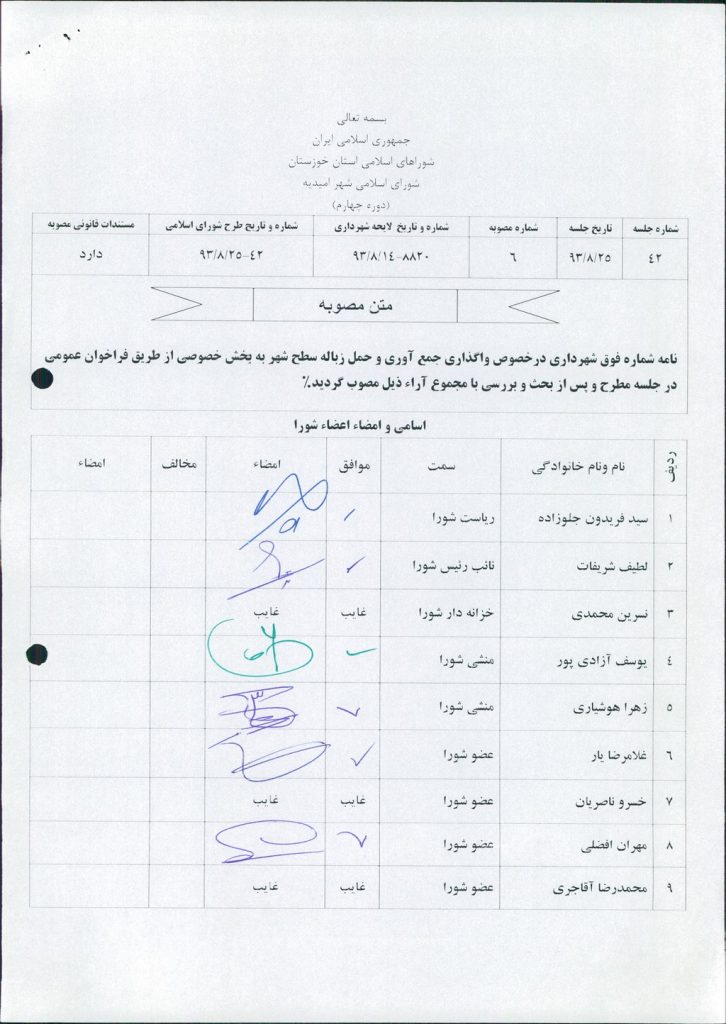 بسمه تعالی
جمهوری اسلامی ایران
شوراهای اسلامی استان خوزستان
شورای اسلامی شهر امیدیه
(دوره چهارم)
شماره جلسه تاریخ جلسه شماره مصوبه شماره و تاریخ لایحه شهرداری شماره و تاریخ طرح شورای اسلامی مستندات قانونی مصوبه
٤٢ ٩٣/٨/٢٥ ٦ ٩٣/٨/١٤-٨٨٢٠ ٩٣/٨/٢٥-٤٢ دارد
متن مصوبه
نامه شماره فوق شهرداری درخصوص واگذاری جمع آوری و حمل زباله سطح شهر به بخش خصوصی از طریق فراخوان عمومی
در جلسه مطرح و پس از بحث و بررسی با مجموع آراء ذیل مصوب گردید.٪
اسامی و امضاء اعضاء شورا
ردیف نام ونام خانوادگی سمت موافق امضاء مخالف امضاء
١ سید فریدون جلوزاده ریاست شورا
٢ لطیف شریفات نائب رئیس شورا
٣ نسرین محمدی خزانه دار شورا غایب غایب
٤ یوسف آزادی پور منشی شورا
٥ زهرا هوشیاری منشی شورا
٦ غلامرضا یار عضو شورا
٧ خسرو ناصریان عضو شورا غایب غایب
٨ مهران افضلی عضو شورا
٩ محمدرضا آقاجری عضو شورا غایب غایب